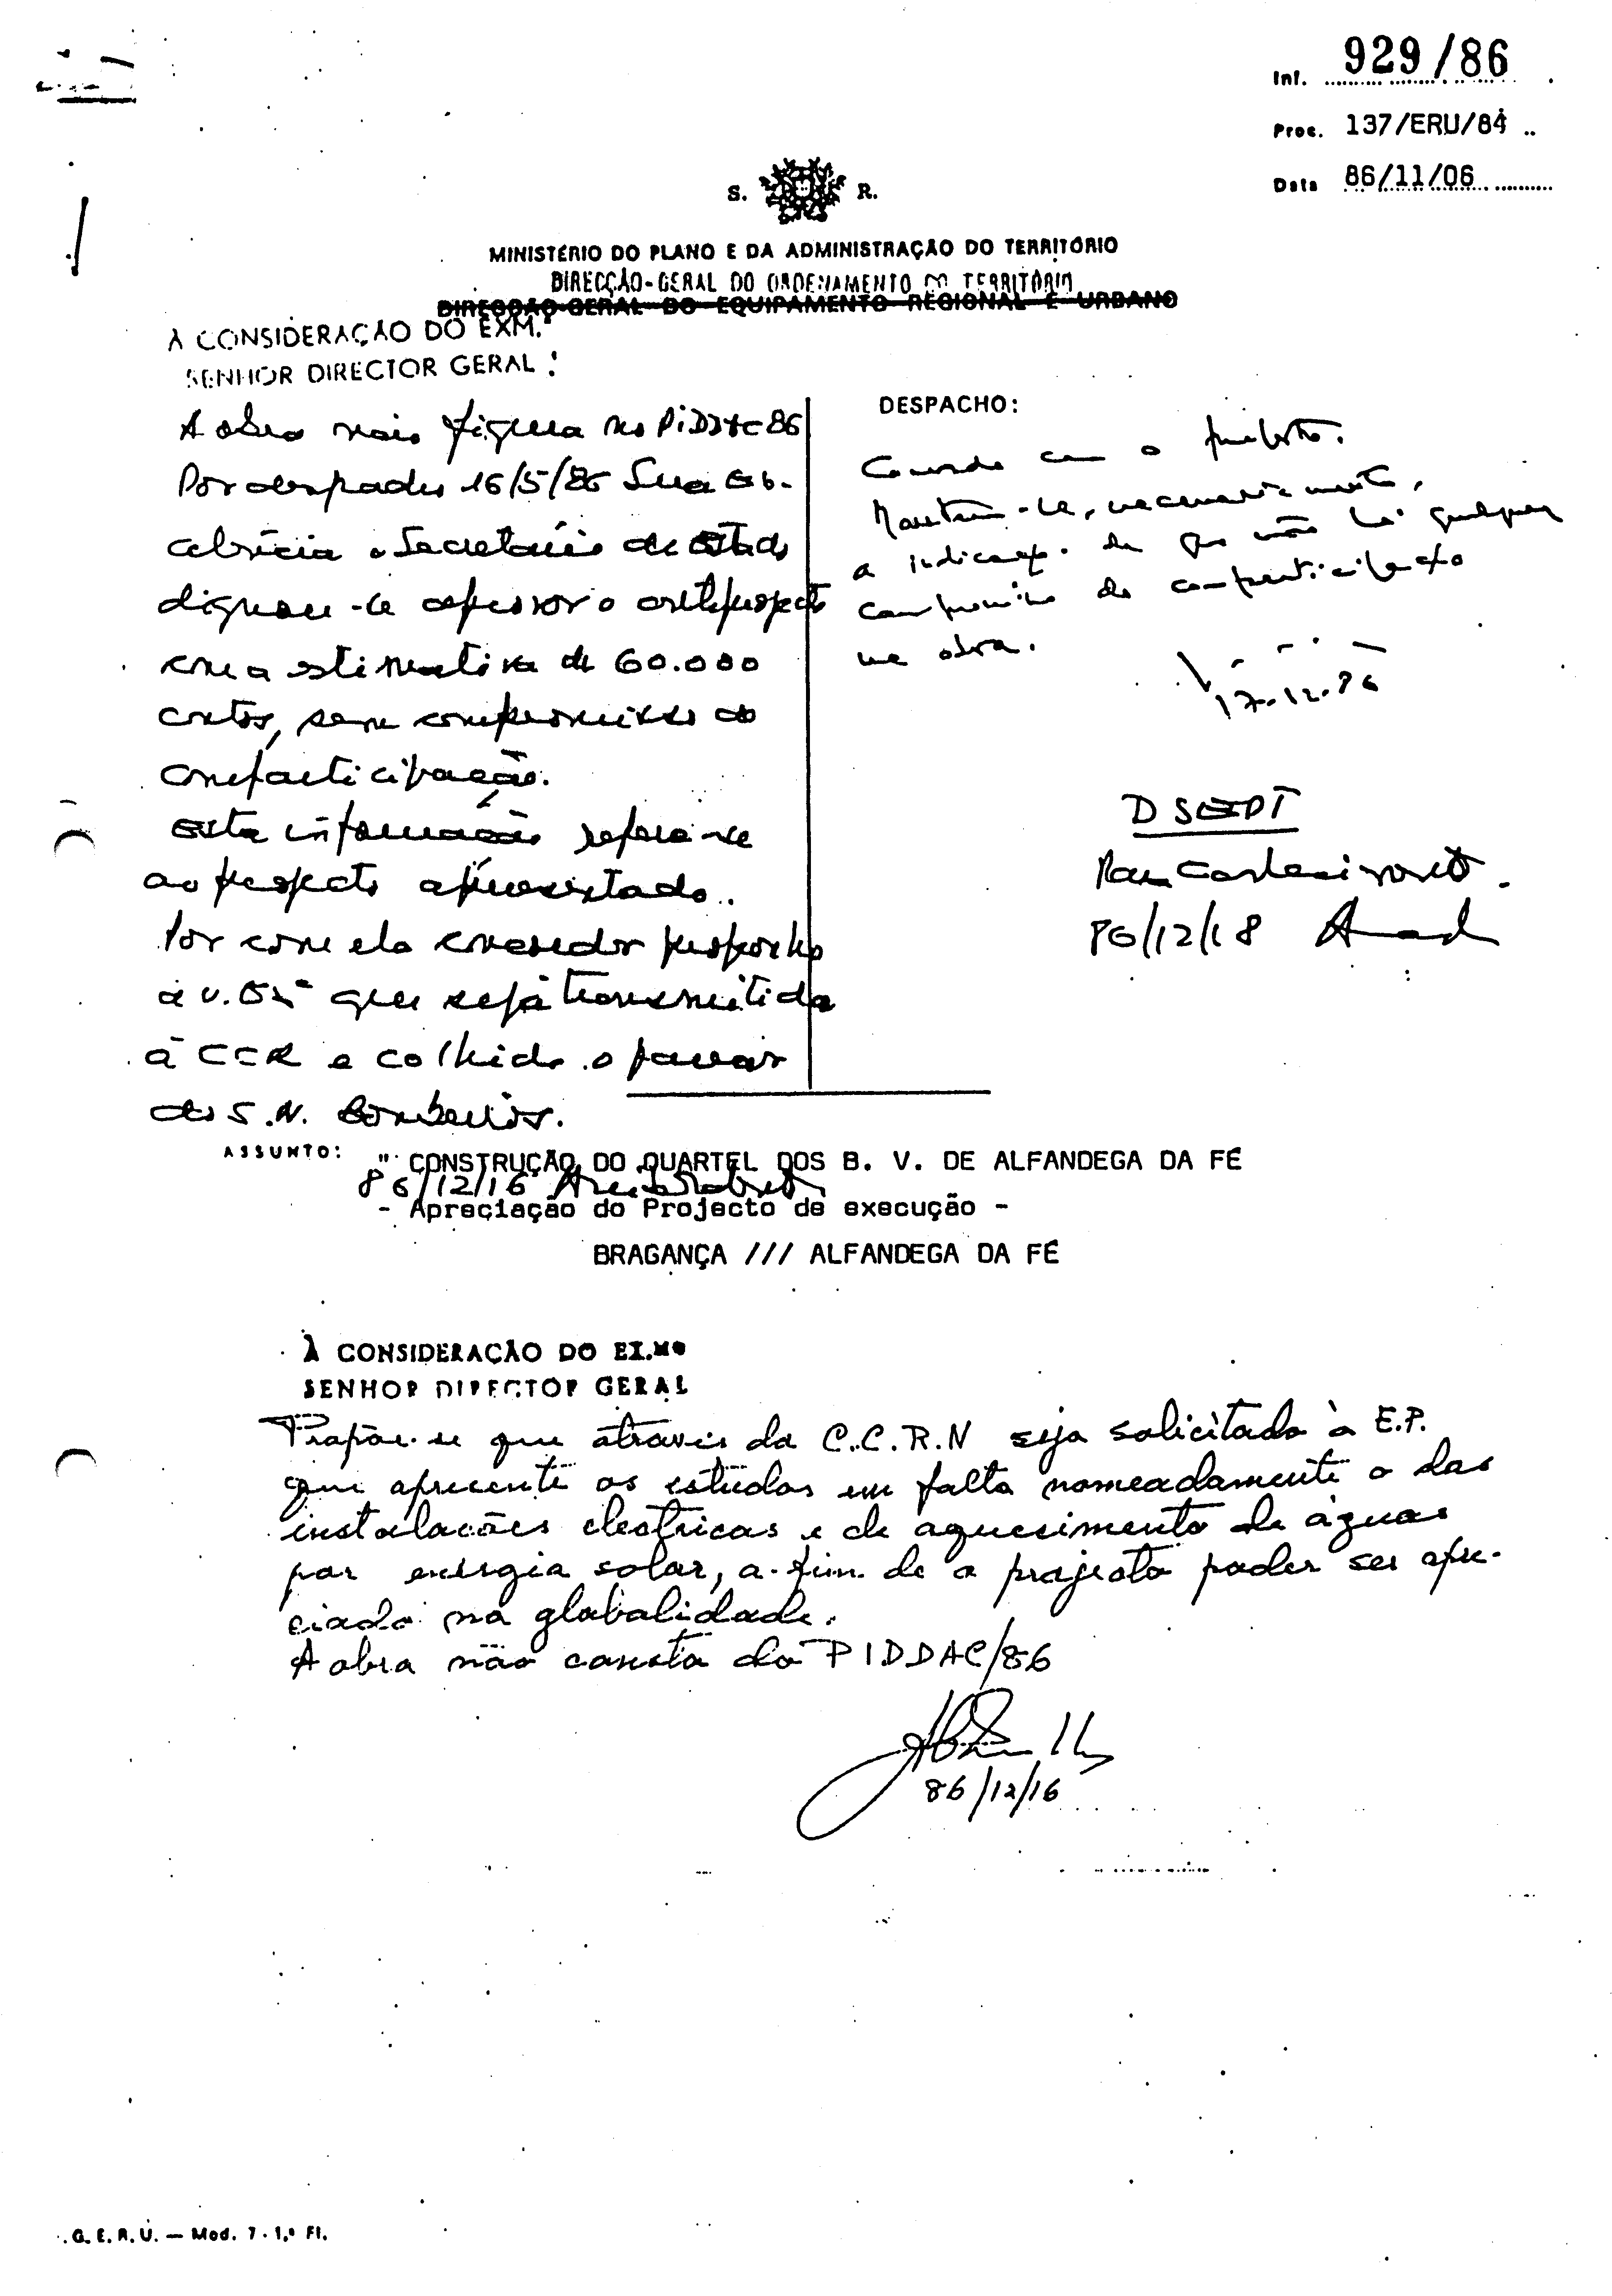 Inf. 929/86
Proc. 137/ERU/84
Data 86/11/06
S. R.
MINISTÉRIO DO PLANO E DA ADMINISTRAÇÃO DO TERRITÓRIO
DIRECÇÃO-GERAL DO ORDENAMENTO DO TERRITÓRIO
DIRECÇÃO-GERAL DO EQUIPAMENTO REGIONAL E URBANO
À CONSIDERAÇÃO DO EXM.º
SENHOR DIRECTOR GERAL:
A obra não figura no PIDDAC 86
Por despacho 16/5/86 Sua Ex-
celência o Secretário de Estado
dignou-se aprovar o anteprojecto
com a estimativa de 60.000
contos, sem compromisso de
comparticipação.
Esta informação refere-se
ao projecto apresentado.
Por com ela concordar proponho
a V. Exª que seja transmitida
à CCR e colhido o parecer
do S.N. Bombeiros.
86/12/16
DESPACHO:
Concordo com o proposto.
Mantém-se, necessariamente,
a indicação de que não há qualquer
compromisso de comparticipação
na obra.
17.12.86
DSEDT
86/12/18
ASSUNTO: " CONSTRUÇÃO DO QUARTEL DOS B. V. DE ALFANDEGA DA FÉ
- Apreciação do Projecto de execução -
BRAGANÇA /// ALFANDEGA DA FÉ
À CONSIDERAÇÃO DO EX.Mº
SENHOR DIRECTOR GERAL
Propõe-se que através da C.C.R.N seja solicitado à E.P.
que apresente os estudos em falta nomeadamente o das
instalações electricas e de aquecimento de águas
por energia solar, a-fim de o projecto poder ser apre-
ciado na globalidade.
A obra não consta do PIDDAC/86
86/12/16
.G.E.R.U. — Mod. 7 - 1.ª Fl.